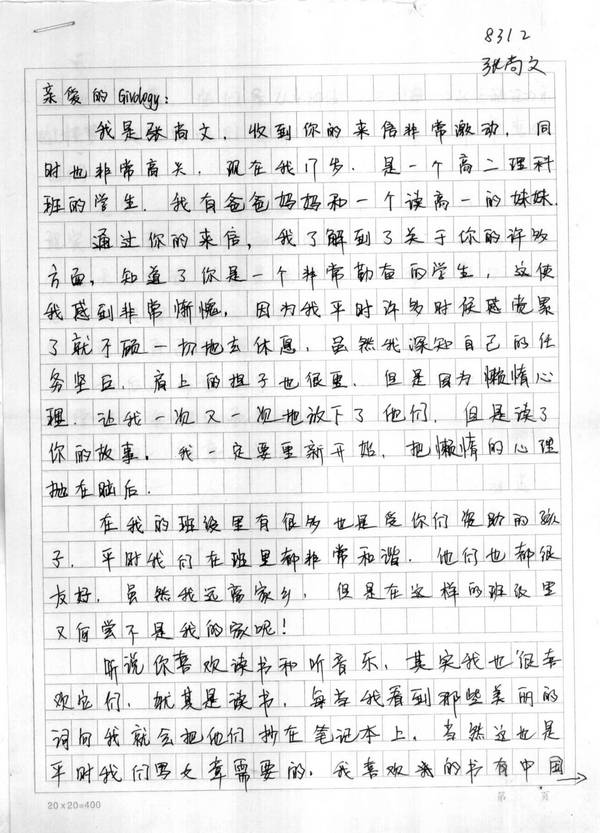 8312
张尚文
亲爱的Givology:
我是张尚文.收到你的来信非常激动,同
时也非常高兴.现在我17岁.是一个高二理科
班的学生.我有爸爸妈妈和一个读高一的妹妹.
通过你的来信,我了解到了关于你的许多
方面,知道了你是一个非常勤奋的学生,这使
我感到非常惭愧,因为我平时许多时候感觉累
了就不顾一切地去休息,虽然我深知自己的任
务坚巨.肩上的担子也很重.但是因为懒惰心
理.让我一次又一次地放下了他们.但是读了
你的故事.我一定要重新开始.把懒惰的心理
抛在脑后.
在我的班级里有很多也是受你们资助的孩
子.平时我们在班里都非常和谐.他们也都很
友好.虽然我远离家乡,但是在这样的班级里
又何尝不是我的家呢!
听说你喜欢读书和听音乐,其实我也很喜
欢它们.就其是读书.每当我看到那些美丽的
词句我就会把他们抄在笔记本上.当然这也是
平时我们写文章需要的.我喜欢的书有中国
20×20=400
第 页